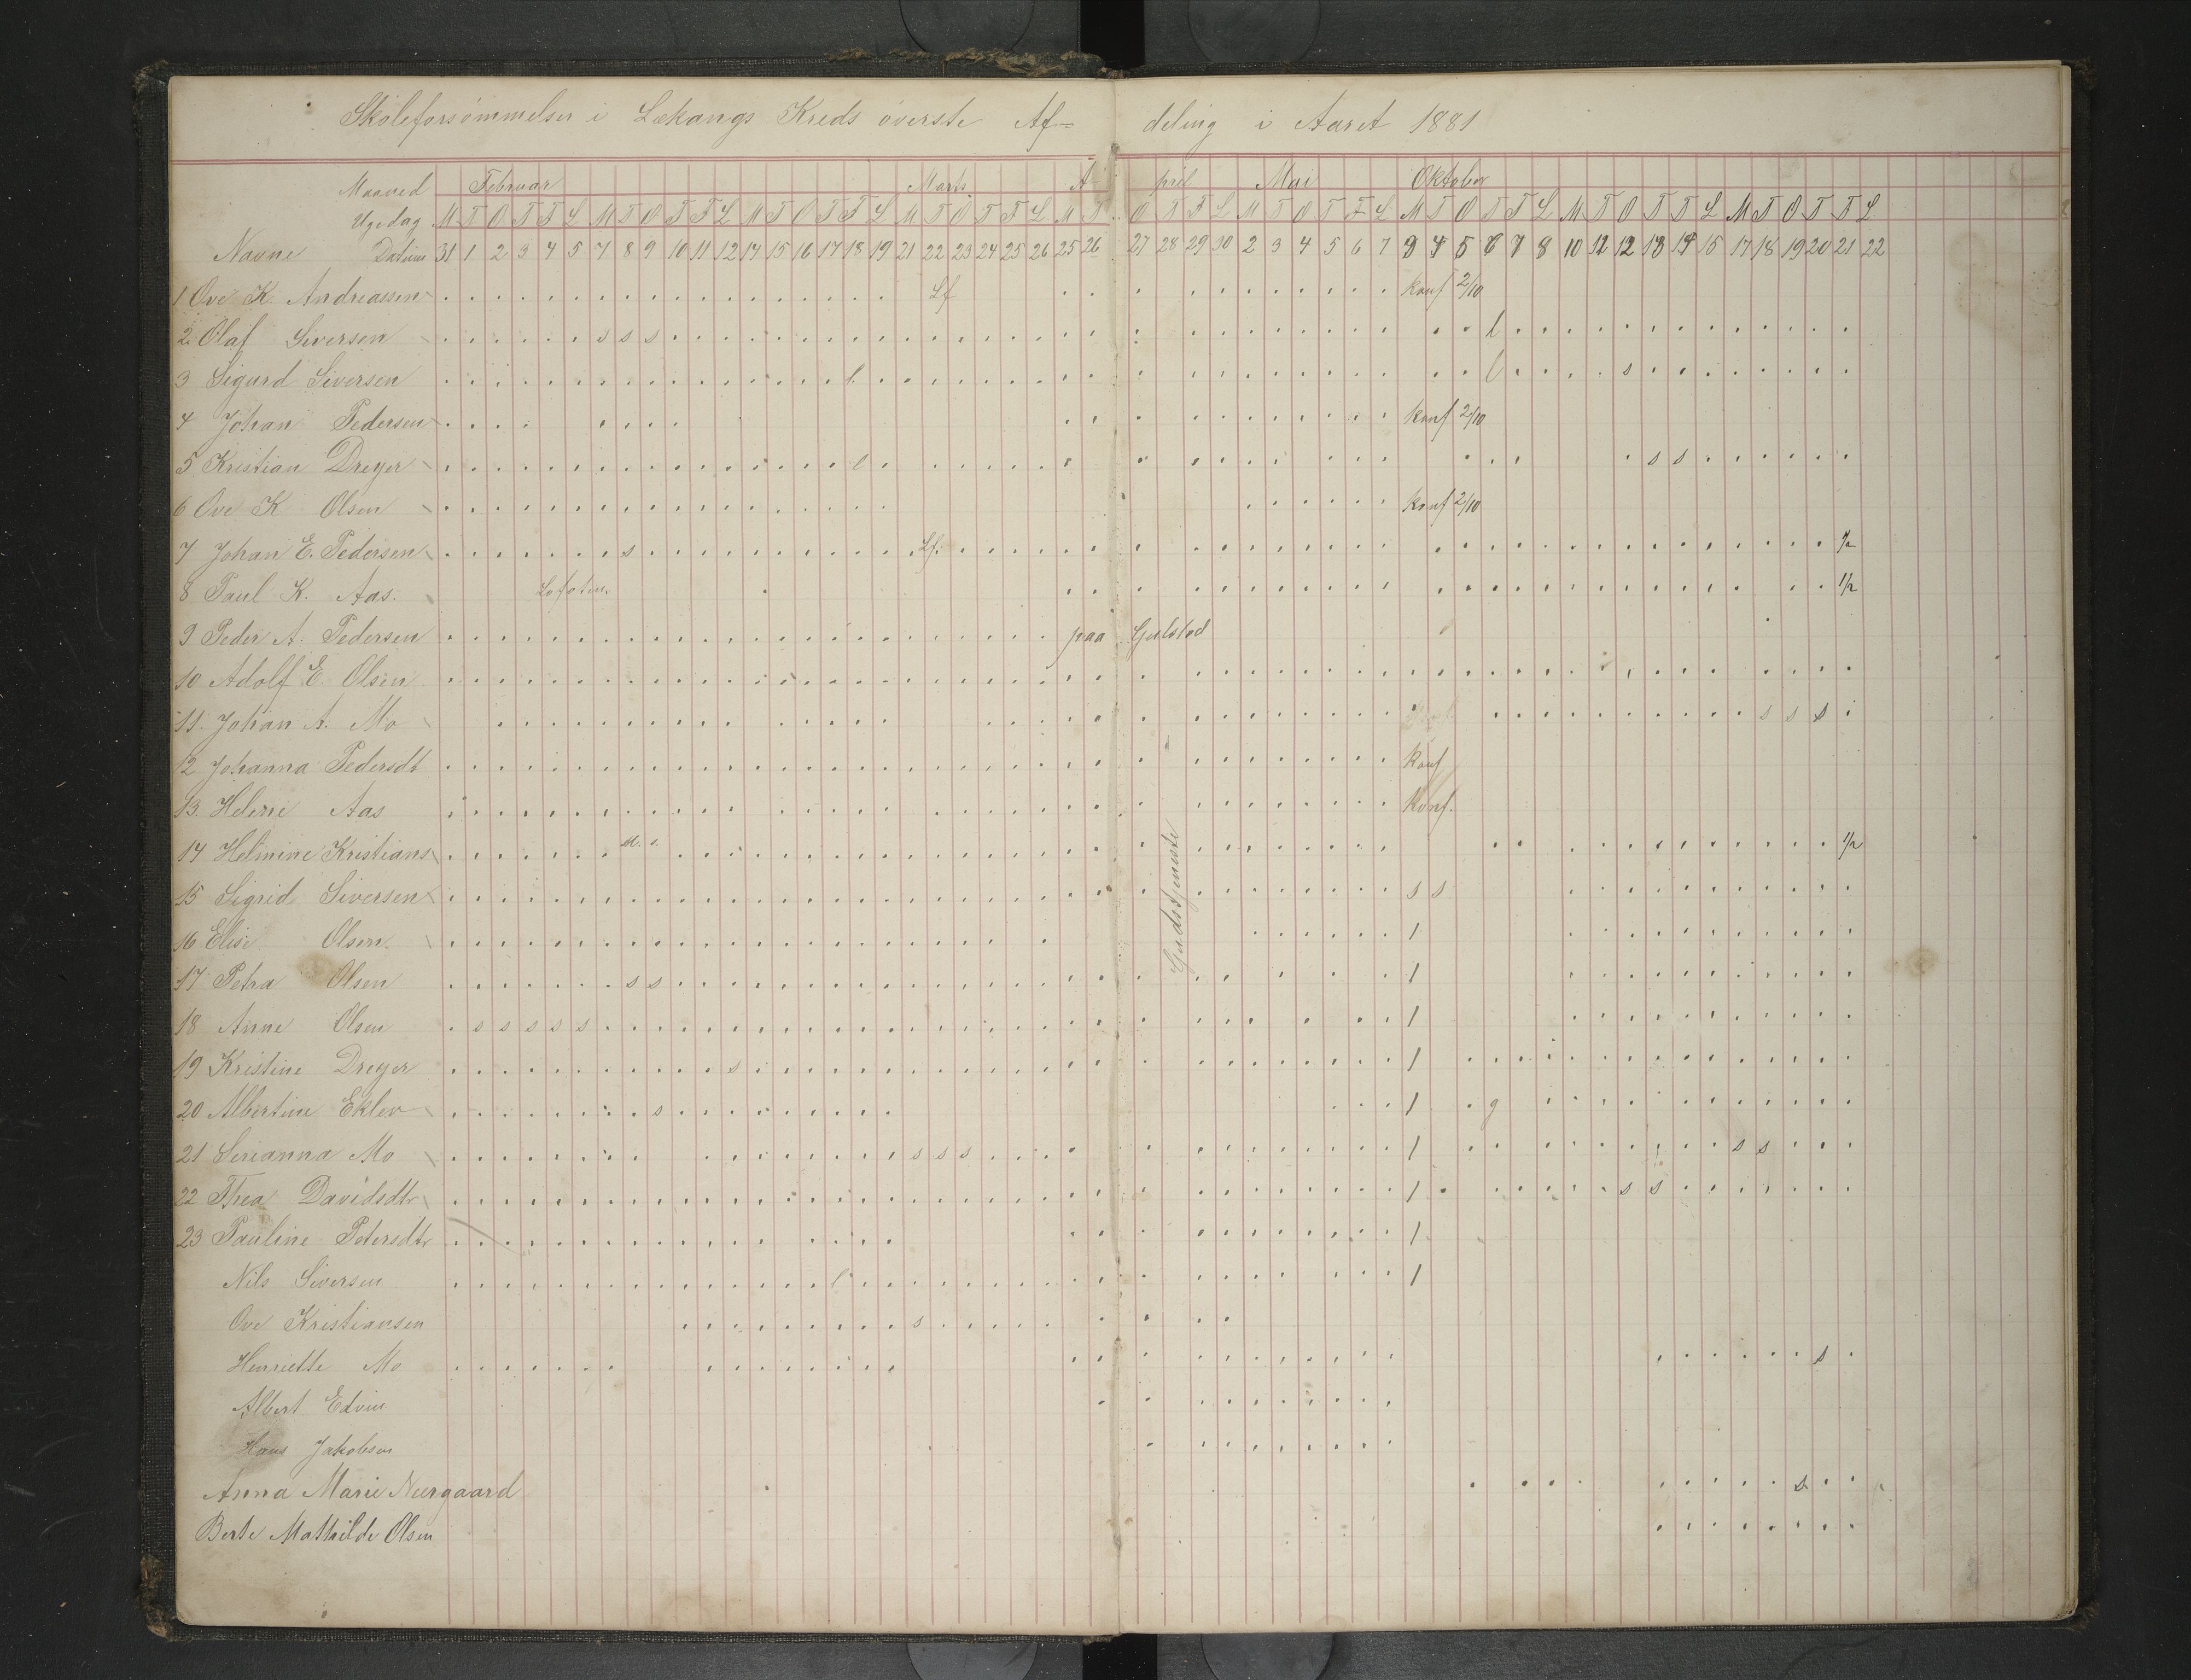 Skoleforsömmelser i Lekangs Kreds överste Af= deling i Aaret 1881
Maaned Februar Marts A pril Mai Oktober
Ugedag M T O T F L M T O T F L M T O T F L M T O T F L M T O T F L M T O T F L M T O T F L M T O T F L M T O T F L
Navne Datum 31 1 2 3 4 5 7 8 9 10 11 12 14 15 16 17 18 19 21 22 23 24 25 26 25 26 27 28 29 30 2 3 4 5 6 7 3 4 5 6 7 8 10 11 12 13 14 15 17 18 19 20 21 22
1 Ove K. Andreassen Lf konf 2/10
2 Olaf Siversen s s s l
3 Sigurd Siversen l l s
4 Johan Pedersen konf 2/10
5 Kristian Dreyer l s s
6 Ove K Olsen konf 2/10
7 Johan E. Pedersen s Lf. 1/2
8 Paul K. Aas. Lofoten. 1/2
9 Peder A. Pedersen paa Gulstad
10 Adolf E Olsen
11. Johan A. Mo s s s
12 Johanna Pedersdt konf
13. Helene Aas konf.
14 Helmine Kristians s. 1/2
Gudstjeneste
15 Sigrid Siversen s s
16 Elise Olsen 1
17 Petra Olsen s s 1
18 Anne Olsen s s s s s 1
19 Kristine Dreyer s 1
20 Albertine Eklev s 1 g
21 Serianna Mo s s s 1 s s
22 Thea Davidsdtr 1 s s
23 Pauline Petersdtr 1
Nils Siversen l 1
Ove Kristiansen s
Henriette Mo s
Albert Edvin
Hans Jakobsen
Anna Marie Neergaard s
Berte Mathilde Olsen